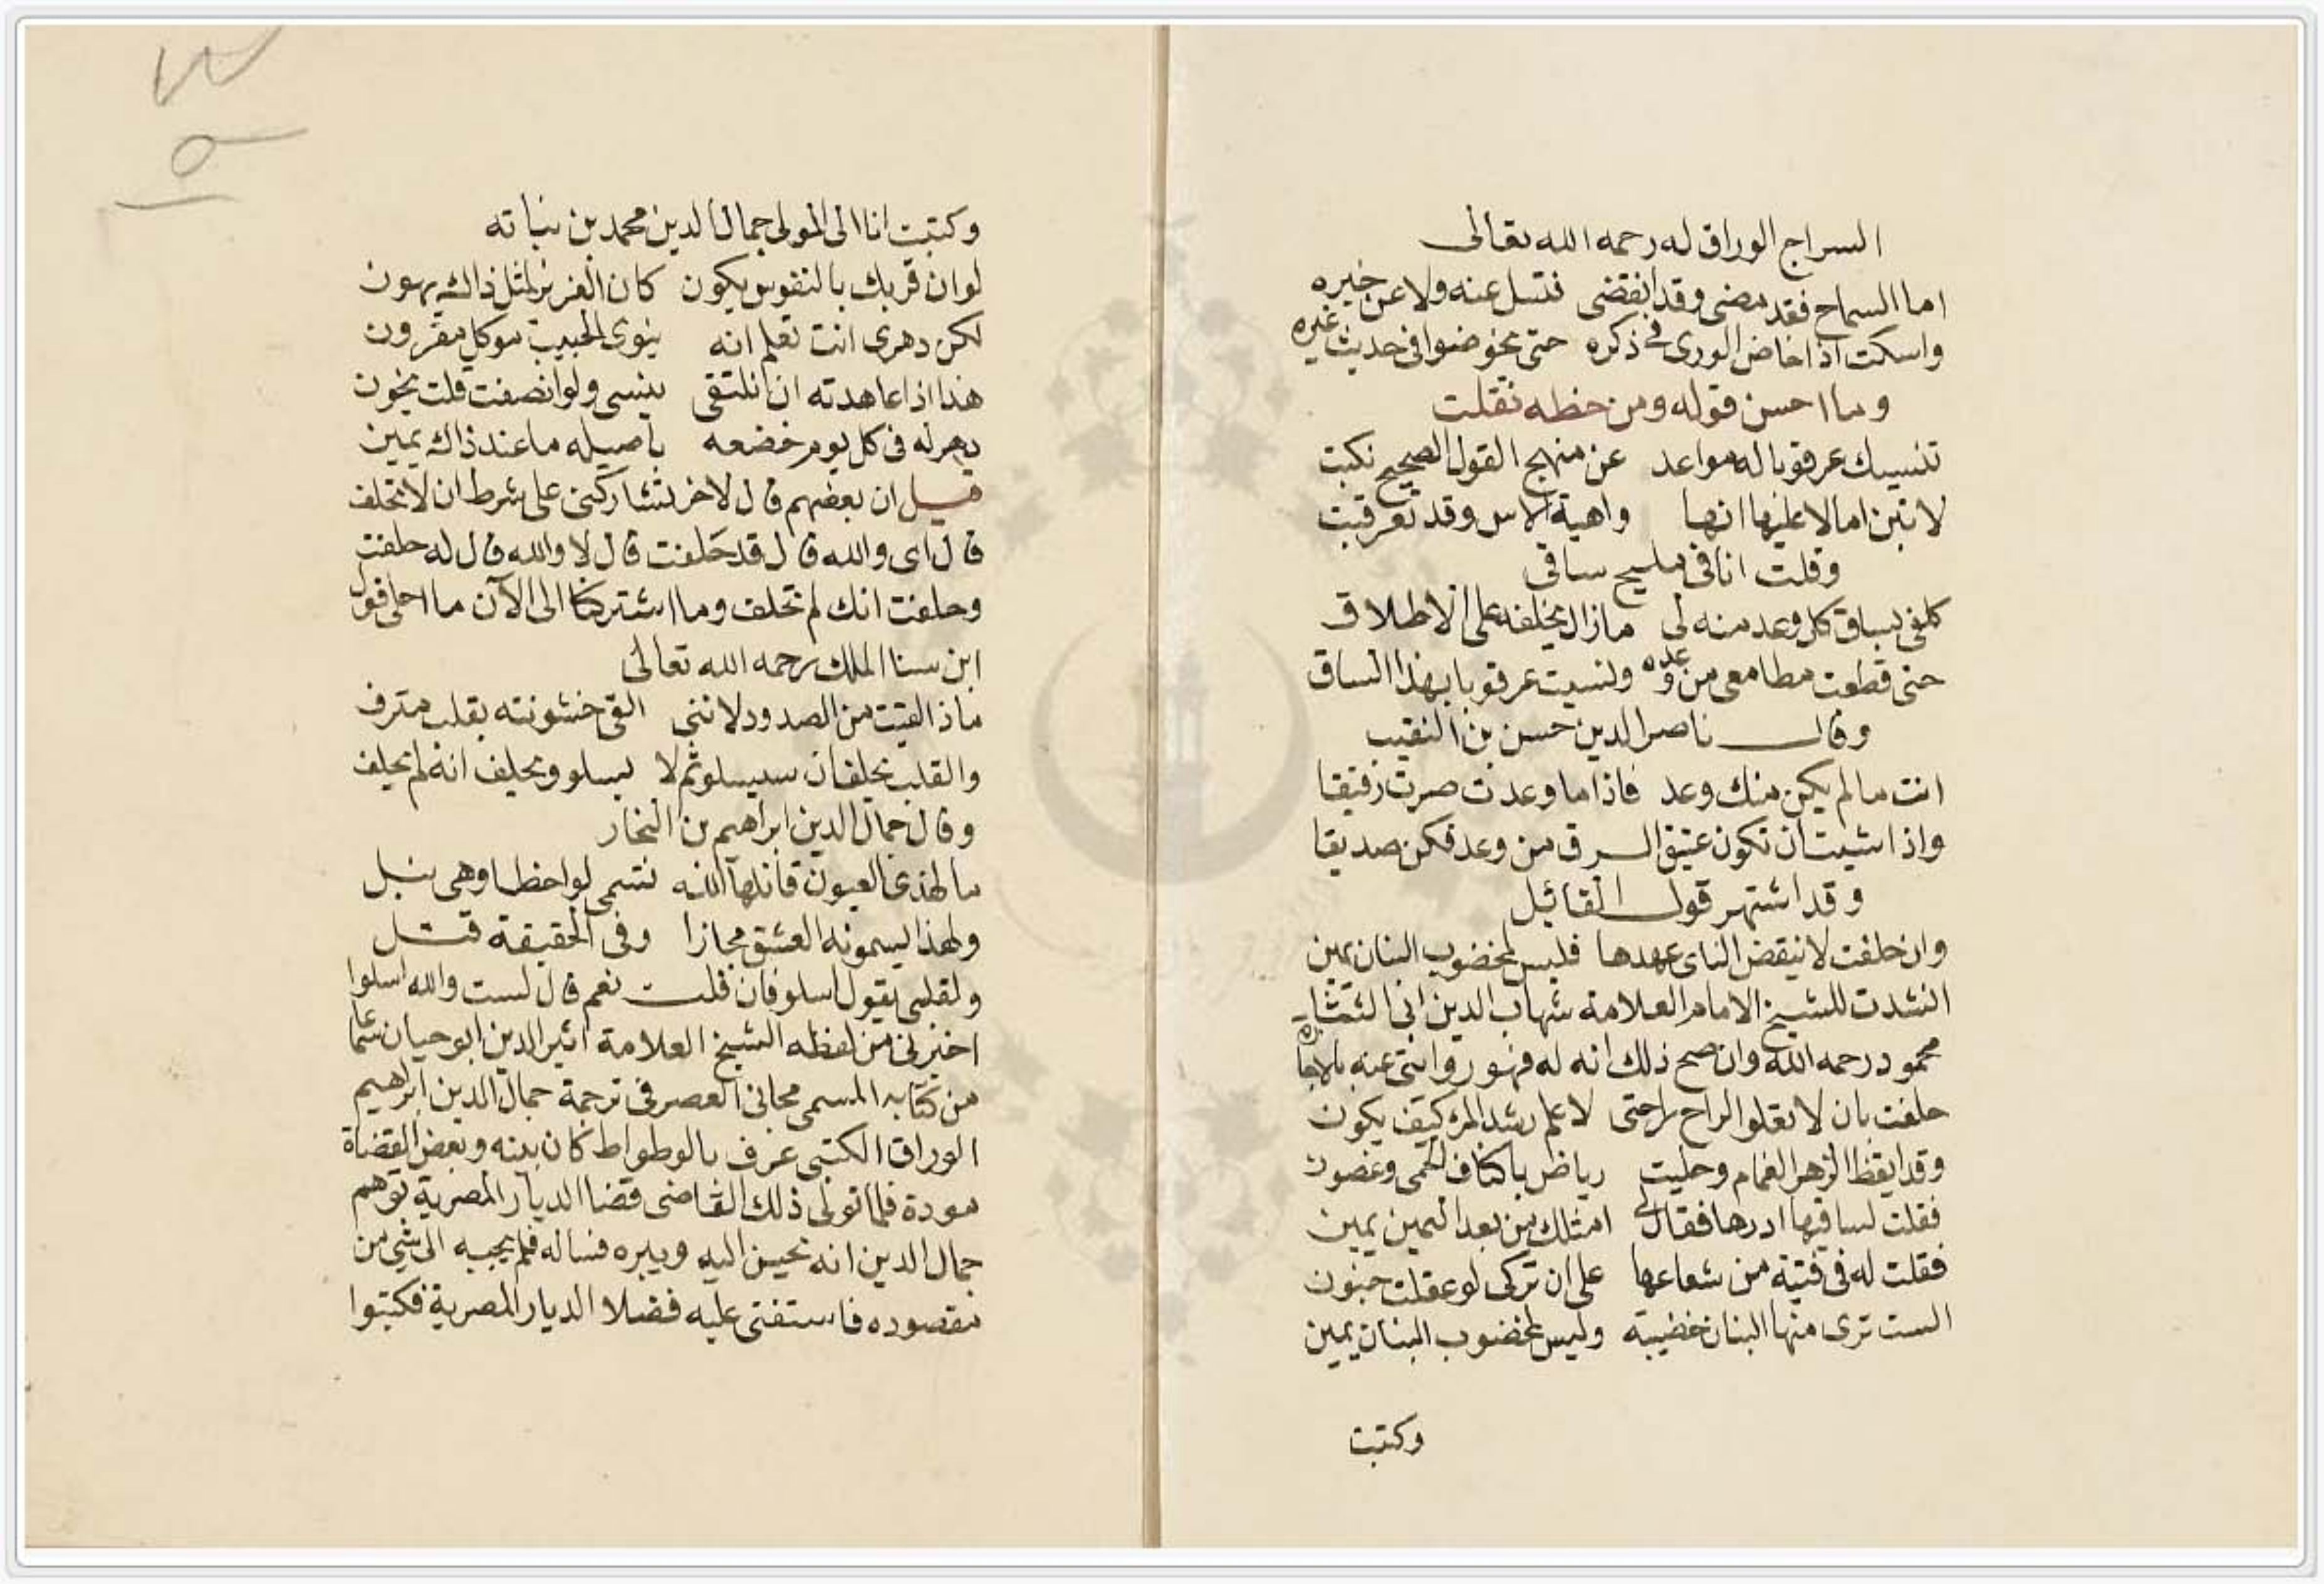 السراج الوراق له رحمه الله تعالى
اما السماح فقد مضى وقد انقضى فتسل عنه ولا عن خيره
واسكت اذا خاض الورى فى ذكره حتى يخوضوا فى حديث غيره
وما احسن قوله ومن خطه نقلت
تنسيك عرقوبا له مواعد عن منهج القول الصحيح نكبت
لا تبن امالا عليها انها واهية الاس وقد تعرقبت
وقلت انا فى مليح ساقى
كلفى بساق كل وعد منه لى مازال يخلفه على الاطلاق
حتى قطعت مطامعى من وعده ونسيت عرقوبا بهذا الساق
وقال ناصر الدين حسن بن النقيب
انت مالم يكن منك وعد فاذا ما وعدت صرت رقيقا
واذا شيت ان تكون عتيق الرق من وعد فكن صديقا
وقد اشتهر قول القائل
وان حلفت لا ينقض الناى عهدها فليس لمخضوب البنان يمين
انشدت للشيخ الامام العلامة شهاب الدين ابى الثنا
محمود رحمه الله وان صح ذلك انه له فهو روايتى عنه بالاجازه
حلفت بان لا تعلوا الراح راحتى لاعلم رشد المر كيف يكون
وقد ايقظ الزهر الغمام وحليت رياض باكناف الحمى وغصون
فقلت لساقيها ادرها فقال لى امثلك من بعد اليمين يمين
فقلت له فى فتية من شعاعها على ان تركى لو عقلت جنون
الست ترى منها البنان خضيبة وليس لمخضوب البنان يمين
وكتبت
وكتبت انا الى المولى جمال الدين محمد بن نباته
لو ان قربك بالنفوس يكون كان العزيز لمثل ذاك يهون
لكن دهرى انت تعلم انه بنوى الحبيب موكل مقرون
هذا اذا عاهدته ان نلتقى ينسى ولو انصفت قلت يخون
دهر له فى كل يوم خضعه ماعند ذاك يمين
قيل ان بعضهم قال لاخر تشاركنى على شرط ان لا تحلف
قال اى والله قال قد حلفت قال لا والله قال له حلفت
وحلفت انك لم تحلف وما اشتركنا الى الآن ما احلى قول
ابن سنا الملك رحمه الله تعالى
ماذا لقيت من الصدود لاننى القى خشونته بقلب مترف
والقلب يحلف ان سيسلو ثم لا يسلو ويحلف انه لم يحلف
وقال جمال الدين ابراهيم بن النجار
ما لهذى العيون قاتلها الله تسمى لواحظا وهى نبل
ولهذا يسمونه العشق مجازا وفى الحقيقة قتل
ولقلبى يقول اسلو فان قلت نعم قال لست والله اسلوا
اخبرنى من لفظه الشيخ العلامة اثير الدين ابو حيان سماعا
من كتابه المسمى مجانى العصر فى ترجمة جمال الدين ابراهيم
الوراق الكتبى عرف بالوطواط كان بينه وبعض القضاة
مودة فلما تولى ذلك القاضى قضا الديار المصرية توهم
جمال الدين انه يحسن اليه ويبره فساله فلم يجبه الى شى من
مقصوده فاستفتى عليه فضلا الديار المصرية فكتبوا